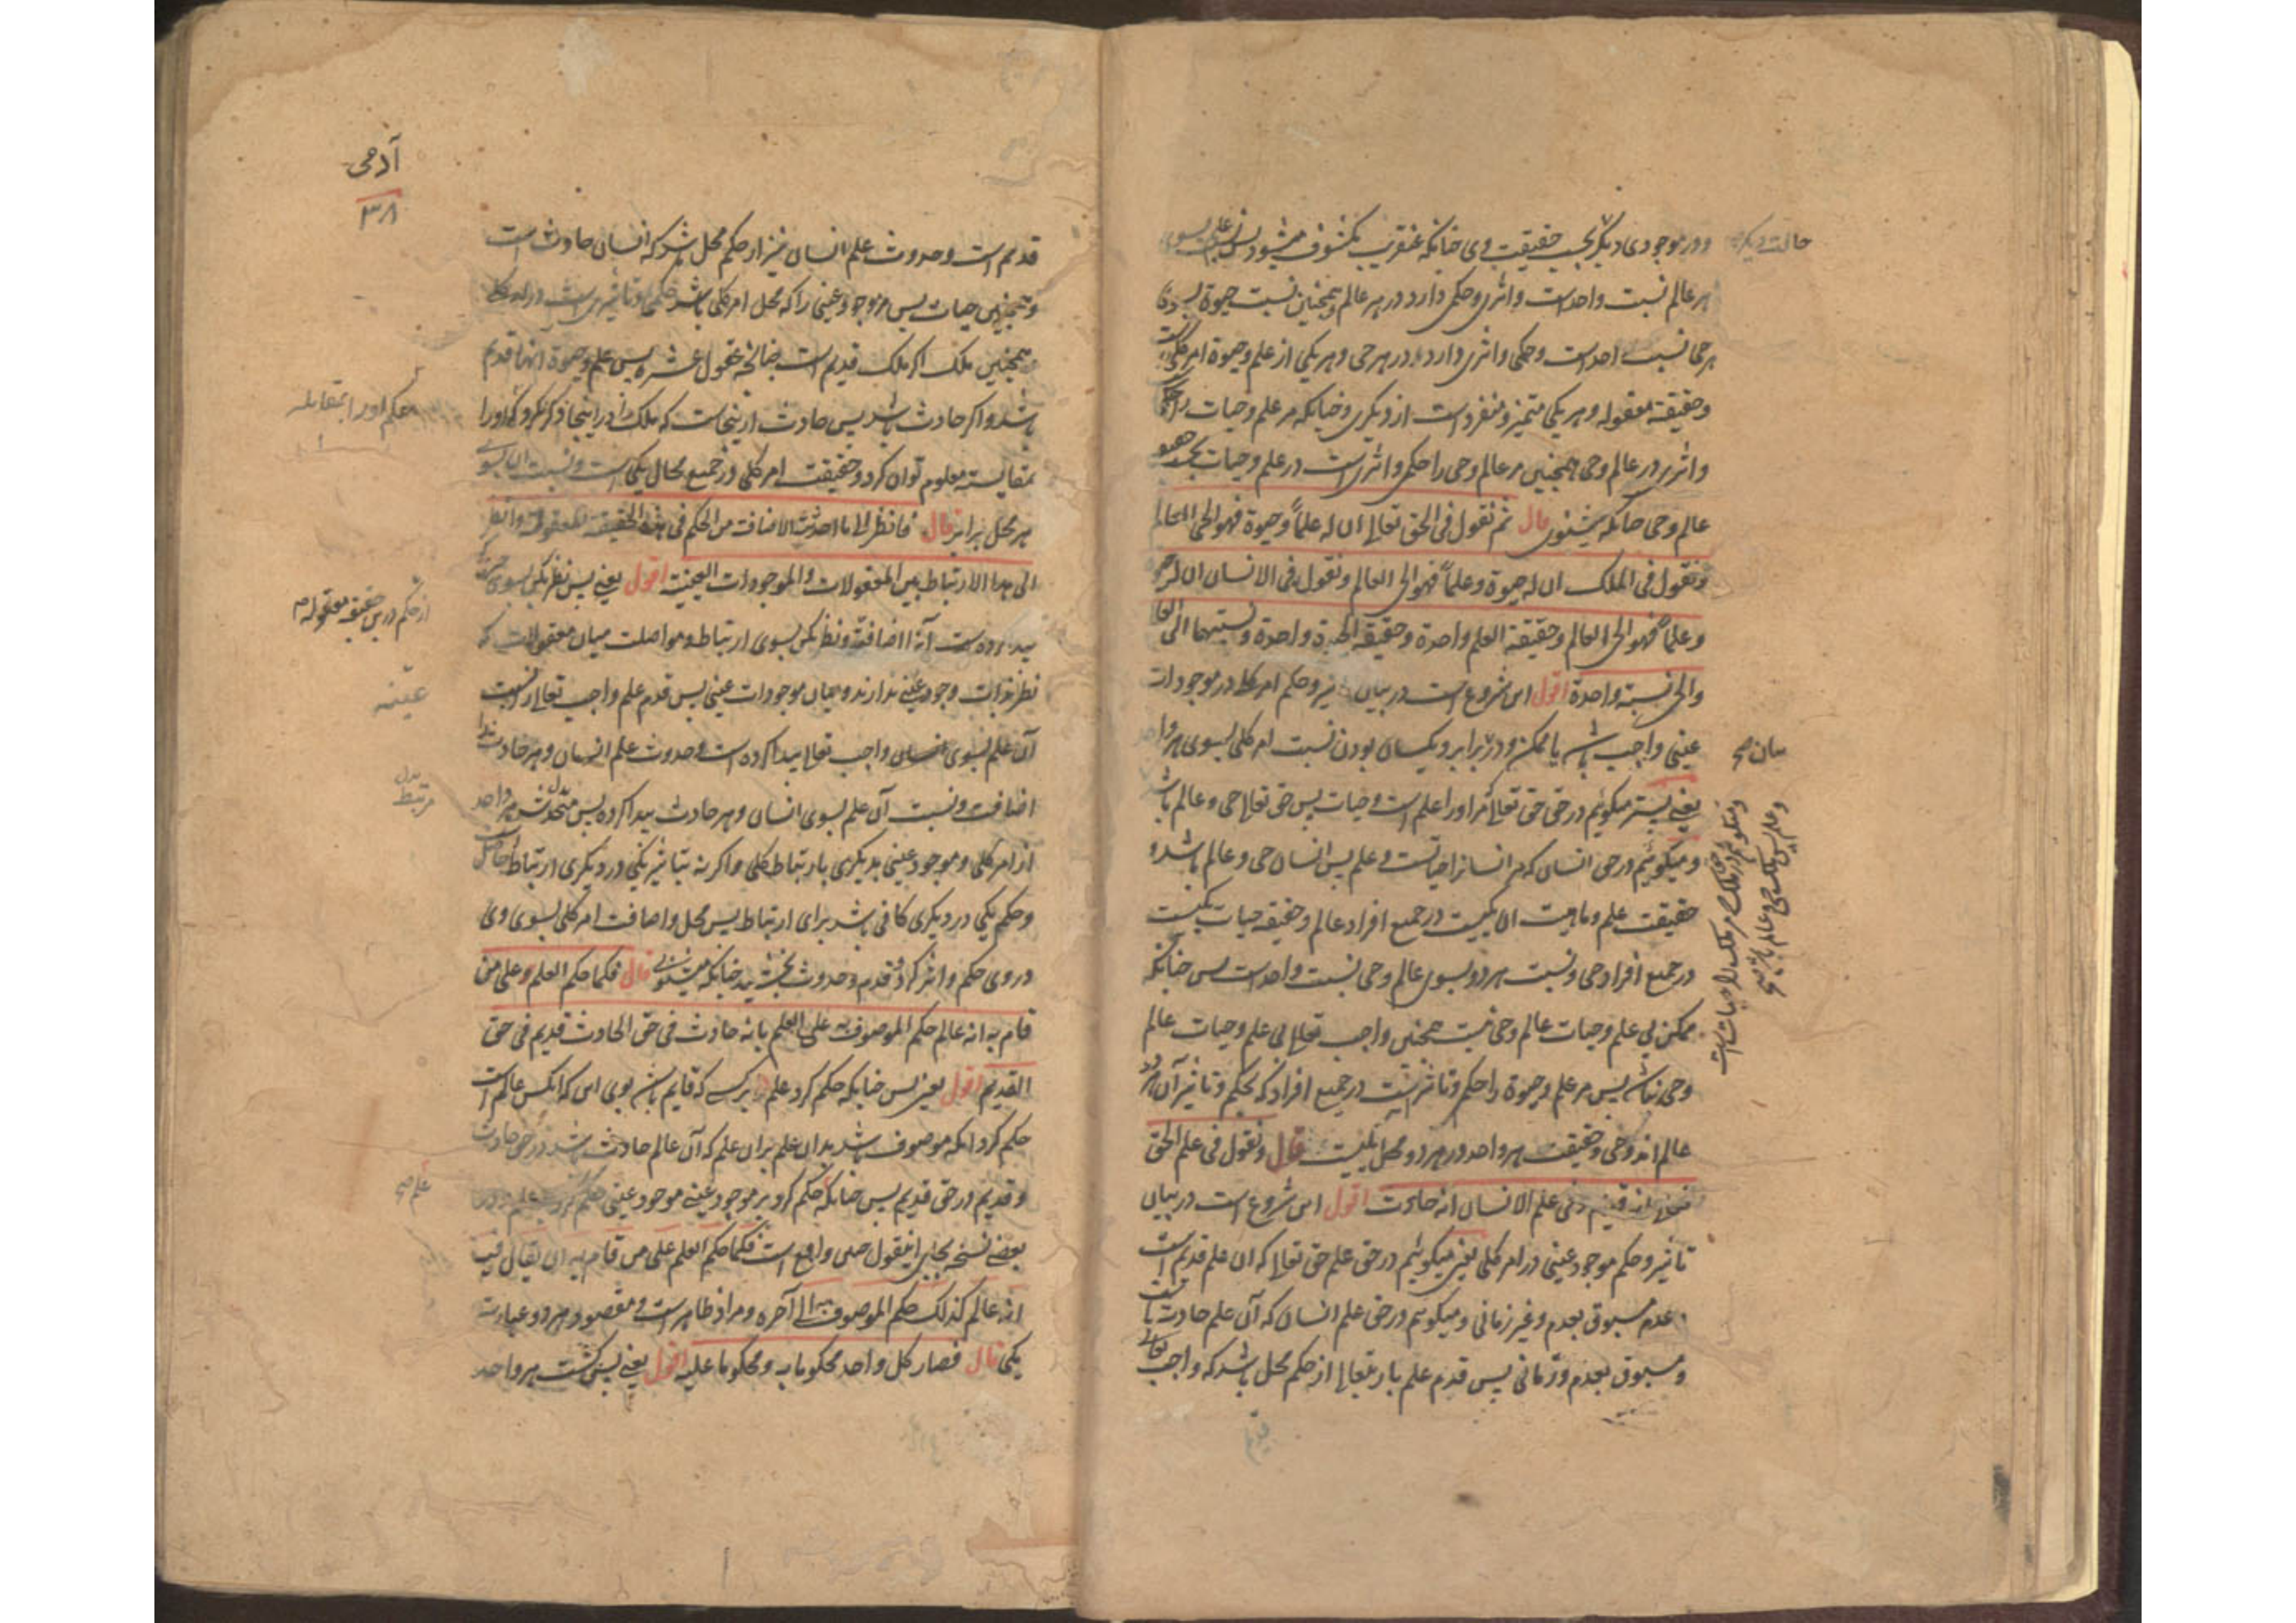 ودر موجودی دیگر بحسب حقیقت وی چنانکه عنقریب مکشوف میشود
هر عالم نسبت واحد است واثری وحکمی دارد در هر عالم وهمچنین نسبت حیوة بسوی
هر حی نسبت واحد است وحکمی واثری دارد در هر حی وهر یکی از علم وحیوة امر کلی است
وحقیقة معقوله وهر یکی متمیز ومنفرد است از دیگری وچنانکه مر علم وحیات را
واثر در عالم وحی همچنین مر عالم وحی را حکمی واثری است در علم وحیات
عالم وحی چنانکه میشنوی قال ثم نقول فی الحق تعالی ان له علماً وحیوة فهو الحی العالم
ونقول فی الملک ان له حیوة وعلماً فهو الحی العالم ونقول فی الانسان ان له حیوة
وعلماً فهو الحی العالم وحقیقة العلم واحدة وحقیقة الحیوة واحدة ونسبتها الی العالم
والحی نسبة واحدة اقول این شروع است در بیان تاثیر وحکم امر کلی در موجودات
عینی واجب باشد یا ممکن ودر برابر ویکسان بودن نسبت امر کلی بسوی هر واحد
یعنی پستر میگوئیم در حق حق تعالی که مر اورا علم است وحیات پس حق تعالی حی وعالم باشد
ومیگوئیم در حق انسان که مر انسانرا حیاتست وعلم پس انسان حی وعالم باشد و
حقیقت علم وماهیت ان یکیست در جمیع افراد عالم وحقیقه حیات یکیست
در جمیع افراد حی ونسبت هر دو بسوی عالم وحی نسبت واحد است پس چنانکه
ممکن بی علم وحیات عالم وحی نیست همچنین واجب تعالی بی علم وحیات عالم
وحی نباشد پس مر علم وحیوة را حکم وتاثیر است در جمیع افراد که بحکم وتاثیر آن هر دو
عالم اند وحی وحقیقت هر واحد در هر دو محل یکیست قال ونقول فی علم الحق
تعالی انه قدیم وفی علم الانسان انه حادث اقول این شروع است در بیان
تاثیر وحکم موجود عینی در امر کلی یعنی میگوئیم در حق علم حق تعالی که ان علم قدیم است
عدم مسبوق بعدم وغیر زمانی ومیگوئیم در حق علم انسان که آن علم حادث است
ومسبوق بعدم وزمانی پس قدم علم باریتعالی از حکم محل باشد که واجب تعالی
حالت دیگر
بیان صح
ومیگوئیم در ملک مر ملک را حیات است
وعلم پس ملک حی وعالم باشد صح
قدیم
آدمی
۳۸
قدیم است وحدوث علم انسان نیز از حکم محل باشد که انسان حادث است
وهمچنین حیات پس مر موجود عینی را که محل امر کلی باشد حکمی وتاثیری است در امر کلی
وهمچنین ملک اگر ملک قدیم است چنانچه عقول عشره پس علم وحیوة انها قدیم
باشد واگر حادث باشد پس حادث ازینجاست که ملک را در اینجا ذکر نکرد که اورا
بمقایسته معلوم توان کرد وحقیقت امر کلی در جمیع محال یکی است ونسبت ان بسوی
هر محل برابر قال فانظر الی ما احدثته الاضافت من الحکم فی هذه الحقیقة المعقولة وانظر
الی هذا الارتباط بین المعقولات والموجودات العینیة اقول یعنی پس نظر بکن بسوی
پیدا کرده است آنرا اضافة ونظر بکن بسوی ارتباط ومواصلت میان معقولات که
نظر بذات وجود عینی ندارند ومیان موجودات عینی پس قدم علم واجب تعالی از نسبت
آن علم بسوی واجب تعالی پیدا کرده است وحدوث علم انسان وهر حادث
اضافت ونسبت آن علم بسوی انسان وهر حادث پیدا کرده پس هر واحد
از امر کلی وموجود عینی بدیگری بارتباط کلی واگر نه بتاثیر یکی در دیگری ارتباط حاصل
وحکم یکی در دیگری کافی باشد برای ارتباط پس محل واضافت امر کلی بسوی وی
در وی حکم واثر کرد وقدم وحدوث بخشید چنانکه میشنوی قال فکما حکم العلم علی من
قام به انه عالم حکم الموصوف به علی العلم بانه حادث فی حق الحادث قدیم فی حق
القدیم اقول یعنی پس چنانکه حکم کرد علم بر کسی که قایم باشد بوی این که انکس عالم است
حکم کرد انکه موصوف باشد بدان علم بران علم که آن عالم حادث باشد در حق حادث
وقدیم در حق قدیم پس چنانکه حکم کرد بر موجود عینی موجود عینی حکم کرد
بعضی نسخه بجای این قول چنین واقع است فکما حکم العلم علی من قام به ان یقال فیه
انه عالم کذلک حکم الموصوف به الی آخره ومراد ظاهر است ومقصود هر دو عبارت
یکی قال فصار کل واحد محکوما به ومحکوما علیه اقول یعنی پس گشت هر واحد
حکم اورا بمقابله
از حکم درین حقیقة معقوله
عینیه
بدل
مرتبط
علم صح